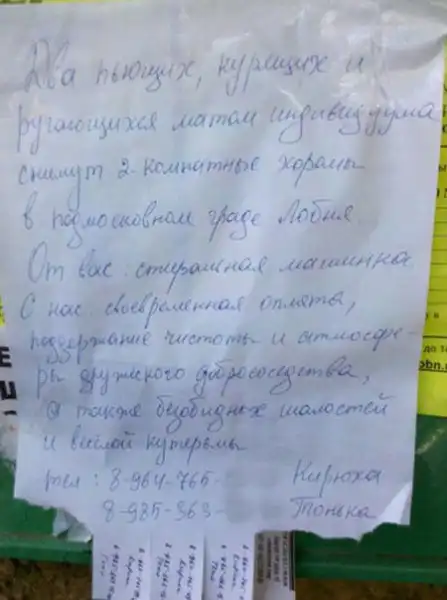 Два пьющих, курящих и
ругающихся матом индивидуума
снимут 2-комнатные хоромы
в подмосковном граде Лобня
От вас: стиральная машинка
С нас: своевременная оплата,
поддержание чистоты и атмосфе-
ры дружеского добрососедства,
а также безобидных шалостей
и весёлой кутерьмы
тел: 8-964-765- Кирюха
8-985-363- Тонька